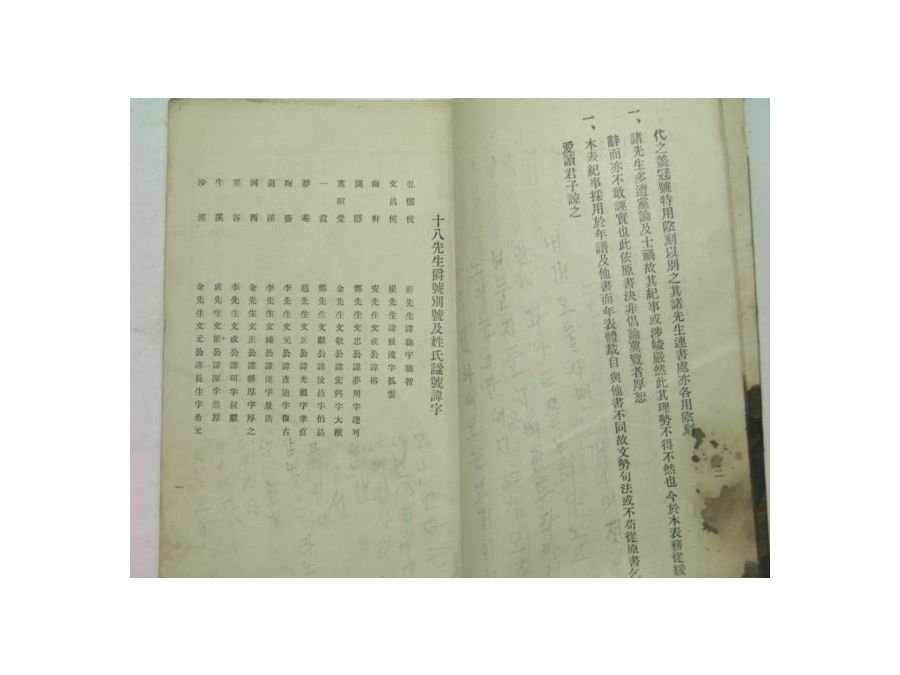 代之蓋冠號特用陰刻以別之其諸先生連書處亦各用陰刻
一、諸先生多遭黨論及士禍故其紀事或涉峻嚴然此其理勢不得不然也今於本表務從緩
辭而亦不敢誣實也此依原書決非倡論黨覽者厚恕
一、本表紀事採用於年譜及他書而年表體裁自與他書不同故文勢句法或不苟從原書乞
愛讀君子諒之
二
十八先生爵號別號及姓氏諡號諱字
弘儒侯 薛先生諱聰字聰智
文昌侯 崔先生諱致遠字孤雲
晦軒 安先生文成公諱裕
圃隱 鄭先生文忠公諱夢周字達可
寒暄堂 金先生文敬公諱宏弼字大猷
一蠹 鄭先生文獻公諱汝昌字伯勗
靜菴 趙先生文正公諱光祖字孝直
晦齋 李先生文元公諱彥迪字復古
退溪 李先生文純公諱滉字景浩
河西 金先生文正公諱麟厚字厚之
栗谷 李先生文成公諱珥字叔獻
牛溪 成先生文簡公諱渾字浩原
沙溪 金先生文元公諱長生字希元
一